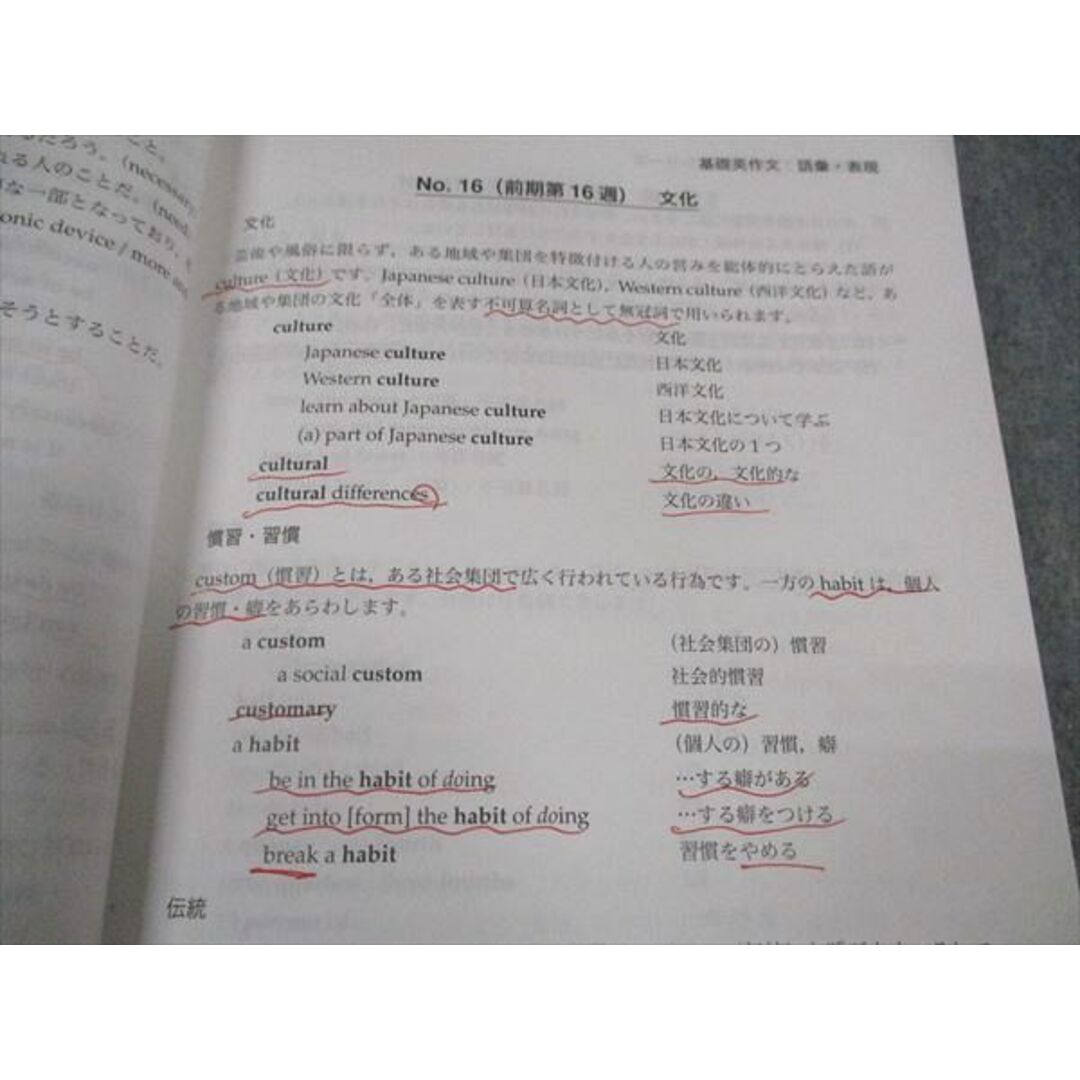 こと。
るだろう。(necessary,
れる人のことだ。(need,
な一部となっており，
onic device / more and
そうとすることだ。
基礎英作文 語彙・表現
No. 16（前期第16週） 文化
文化
芸術や風俗に限らず，ある地域や集団を特徴付ける人の営みを総体的にとらえた語が
culture（文化）です。Japanese culture（日本文化），Western culture（西洋文化）など，あ
る地域や集団の文化「全体」を表す不可算名詞として無冠詞で用いられます。
culture 文化
Japanese culture 日本文化
Western culture 西洋文化
learn about Japanese culture 日本文化について学ぶ
(a) part of Japanese culture 日本文化の1つ
cultural 文化の，文化的な
cultural differences 文化の違い
慣習・習慣
custom（慣習）とは，ある社会集団で広く行われている行為です。一方の habit は，個人
の習慣・癖をあらわします。
a custom （社会集団の）慣習
a social custom 社会的慣習
customary 慣習的な
a habit （個人の）習慣，癖
be in the habit of doing …する癖がある
get into [form] the habit of doing …する癖をつける
break a habit 習慣をやめる
伝統